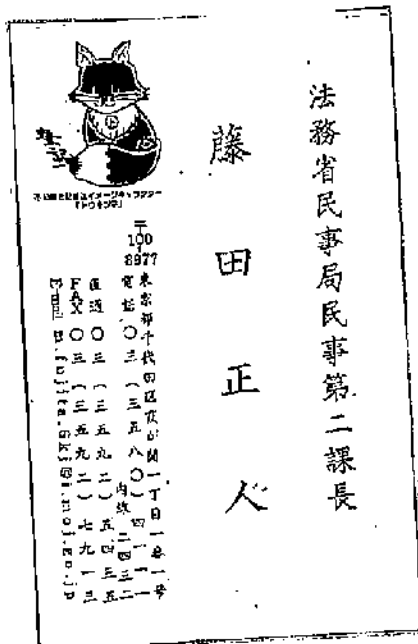 法務省民事局民事第二課長
藤田正人
不動産登記推進イメージキャラクター
「トウキツネ」
〒100-8977
東京都千代田区霞が関一丁目一番一号
電話 〇三(三五八〇)四一一一
内線 二四三二
直通 〇三(三五九二)五四三五
FAX 〇三(三五九二)七九一三